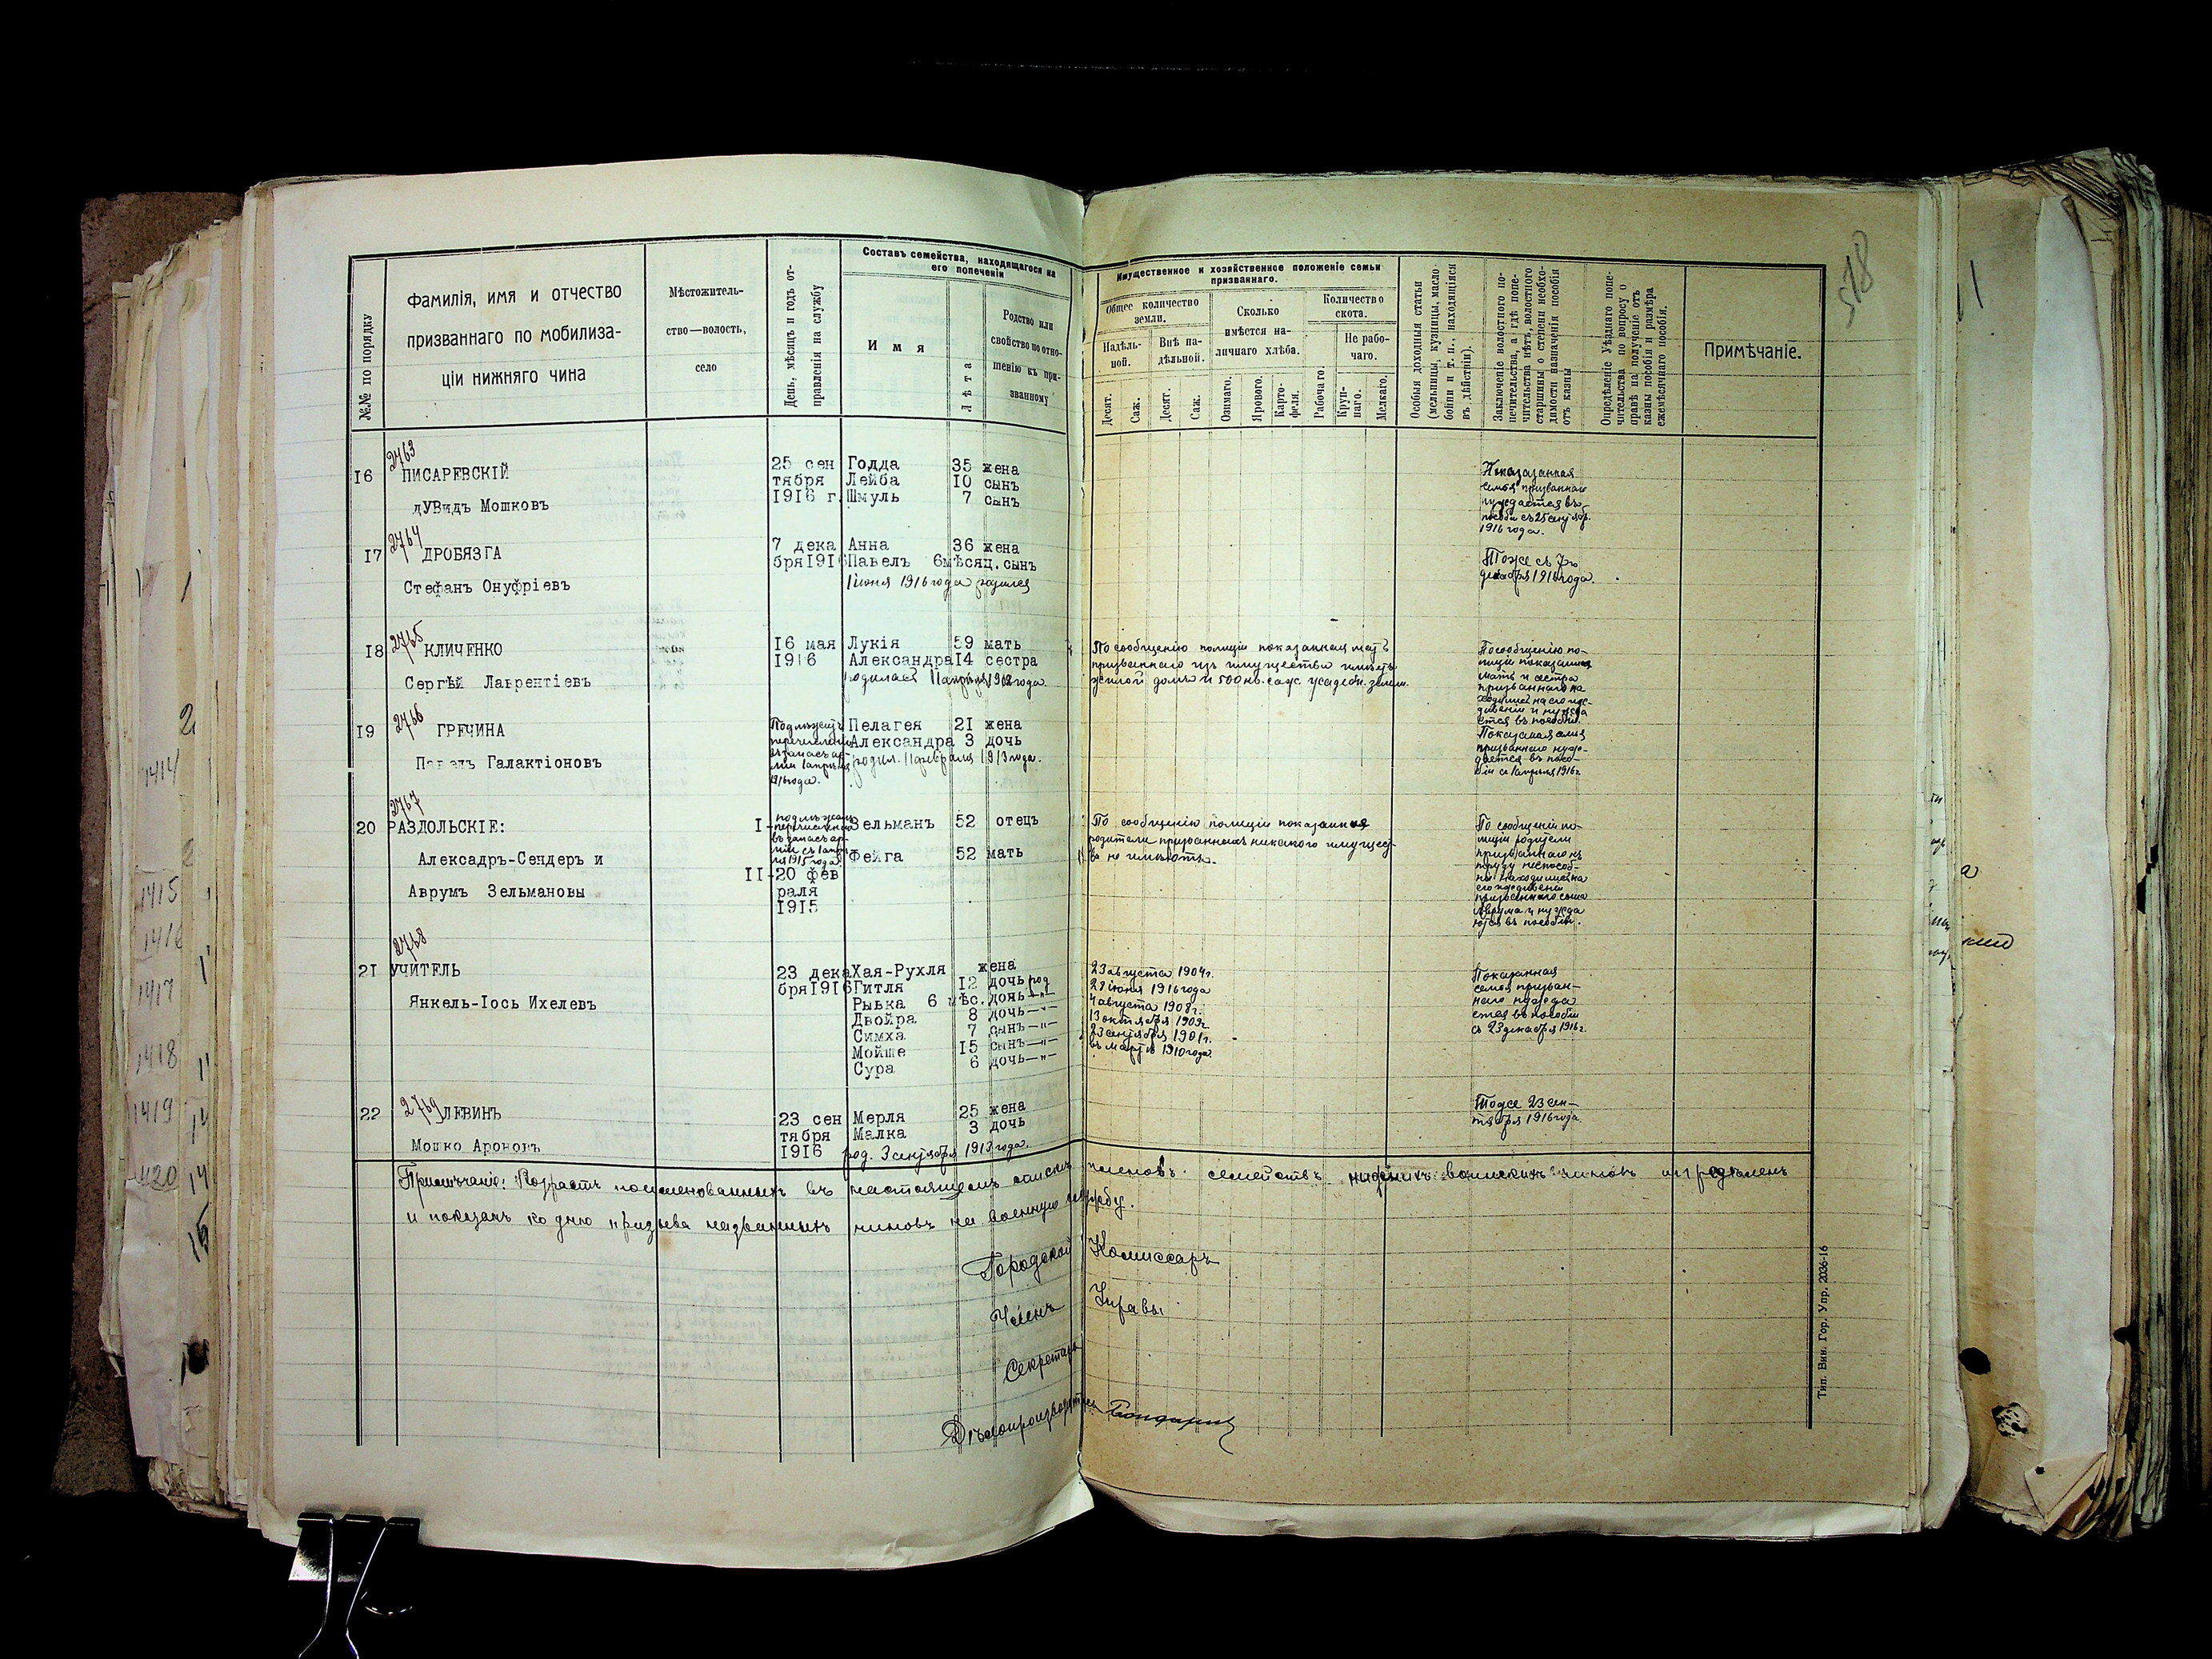 578
№№ по порядку
Фамилія, имя и отчество
призваннаго по мобилиза-
ціи нижняго чина
Мѣстожитель-
ство—волость,
село
День, мѣсяцъ и годъ от-
правленія на службу
Составъ семейства, находящагося на
его попеченіи
Имя
Лѣта
Родство или
свойство по отно-
шенію къ при-
званному
Имущественное и хозяйственное положеніе семьи
призваннаго.
Общее количество
земли.
Надѣль-
ной.
Внѣ на-
дѣльной.
Десят.
Саж.
Десят.
Саж.
Сколько
имѣется на-
личнаго хлѣба.
Озимаго.
Ярового.
Карто-
феля.
Количество
скота.
Рабочаго.
Не рабо-
чаго.
Круп-
наго.
Мелкаго.
Особыя доходныя статьи
(мельницы, кузницы, масло-
бойни и т. п., находящіяся
въ дѣйствіи).
Заключеніе волостного по-
печительства, а гдѣ попе-
чительства нѣтъ, волостного
старшины о степени необхо-
димости назначенія пособія
отъ казны
Опредѣленіе Уѣзднаго попе-
чительства по вопросу о
правѣ на полученіе отъ
казны пособія и размѣра
ежемѣсячнаго пособія.
Примѣчаніе.
2763
16 ПИСАРЕВСКІЙ
дУВидъ Мошковъ
25 сен
тября
1916 г.
Годда 35 жена
Лейба 10 сынъ
Шмуль 7 сынъ
Показанная
семья призваннаго
нуждается въ
пособіи съ 25 сентябр.
1916 года.
2764
17 ДРОБЯЗГА
Стефанъ Онуфріевъ
7 дека
бря1916
Анна 36 жена
Павелъ 6мѣсяц. сынъ
1 іюня 1916 года родился
Тоже съ 7го
декабря 1916 года.
2765
18 КЛИЧЕНКО
Сергѣй Лаврентіевъ
16 мая
1916
Лукія 59 мать
Александра14 сестра
родилась 11 апрѣля 1902 года.
По сообщенію полиціи показанная мать
призваннаго изъ имущества имѣетъ
жилой домъ и 500 кв. саж. усадебн. земли.
По сообщенію по-
лиціи показанная
мать и сестра
призваннаго на
ходились на его иж-
дивеніи и нужда
ется въ пособіи.
2766
19 ГРЕЧИНА
Павелъ Галактіоновъ
Подлежитъ
перечисленію
въ запасъ ар-
міи 1 апрѣля
1916 года.
Пелагея 21 жена
Александра 3 дочь
родил. 11 февраля 1913 года.
Показаная семья
призваннаго нуж-
дается въ посо-
біи съ 1 апрѣля 1916 г.
2767
20 РАЗДОЛЬСКІЕ:
Алексадръ-Сендеръ и
Аврумъ Зельмановы
I-
подлежалъ
перечисленію
въ запасъ ар-
міи съ 1 апрѣ-
ля 1915 года
II-20 фев
раля
1915
Зельманъ 52 отецъ
Фейга 52 мать
По сообщенію полиціи показанные
родители призванныхъ никакого имущест-
ва не имѣютъ.
По сообщенію по-
лиціи родители
призваннаго къ
труду неспособ-
ны находились на
его иждивеніи
призваннаго сына
Аврума и нужда
ются въ пособіи.
2768
21 УЧИТЕЛЬ
Янкель-Іось Ихелевъ
23 дека
бря1916
Хая-Рухля жена
Гитля 12 дочь род 23 августа 1904 г.
Рывка 6 мѣс. дочь —"— 28 іюня 1916 года
Двойра 8 дочь —"— 4 августа 1908 г.
Симха 7 сынъ —"— 13 октября 1909 г.
Мойше 15 сынъ —"— 23 сентября 1901 г.
Сура 6 дочь —"— въ мартѣ 1910 года.
Показанная
семья призван-
наго нужда
ется въ пособіи
съ 23 декабря 1916 г.
2769
22 ЛЕВИНЪ
Мошко Ароновъ
23 сен
тября
1916
Мерля 25 жена
Малка 3 дочь
род. 3 сентября 1913 года.
Тоже 23 сен-
тября 1916 года.
Примѣчаніе: Возрастъ поименованныхъ въ настоящемъ спискѣ членовъ семействъ нижнихъ воинскихъ чиновъ опредѣленъ
и показанъ ко дню призыва названныхъ чиновъ на военную службу.
Городской Комиссаръ
Членъ Управы
Секретарь
Дѣлопроизводитель
Тип. Вин. Гор. Упр. 2036-16
1414
1415
1416
1417
1418
1419
1420